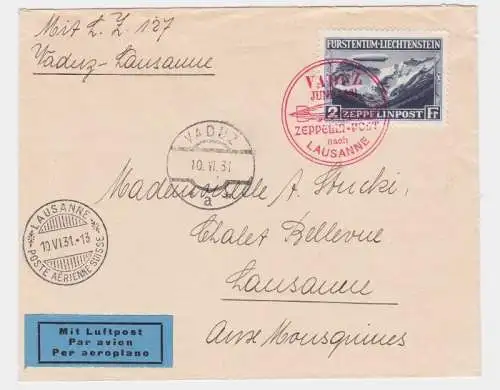 Mit L. Z. 127
Vaduz - Lausanne
FÜRSTENTUM-LIECHTENSTEIN
2 ZEPPELINPOST F
VADUZ
JUNI
ZEPPELIN-POST
nach
LAUSANNE
VADUZ
10. VI. 31
a
Mademoiselle A. Stucki,
Chalet Bellevue
Lausanne
Aux Mousquines
LAUSANNE
10 VI 31.-13
POSTE AÉRIENNE SUISSE
Mit Luftpost
Par avion
Per aeroplano